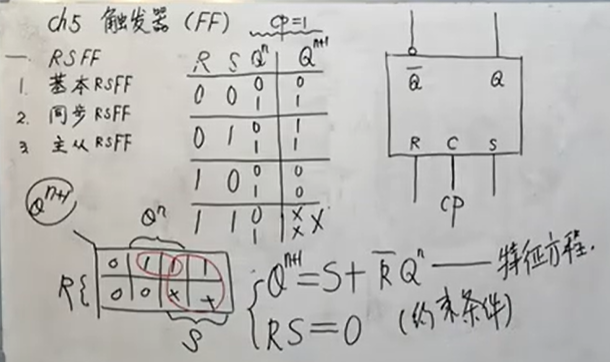 ch5 触发器 (FF)
一. RSFF
1. 基本RSFF
2. 同步RSFF
3. 主从RSFF
CP=1
R S Qⁿ Qⁿ⁺¹
0 0 0 0
1 1
0 1 0 1
1 1
1 0 0 0
1 0
1 1 0 × ×
1 ×
Q̅ Q
R C S
CP
Qⁿ⁺¹
Qⁿ
0 1 1 1
R{ 0 0 × ×
S
{ Qⁿ⁺¹=S+R̅Qⁿ —— 特征方程.
RS=0 (约束条件)